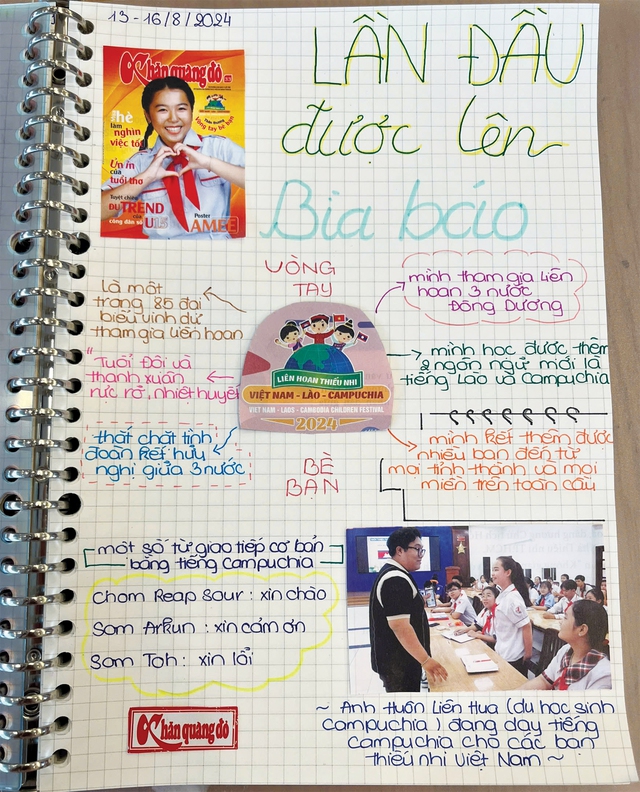 13-16/8/2024
LẦN ĐẦU
được lên
Bìa báo
Khăn quàng đỏ
hè
làm
nghìn
việc tốt
Ủn ỉn
của
tuổi thơ
Tuyệt chiêu
ĐU TREND
của
công dân số U15
Poster
AMEE
VÒNG
TAY
là một
trong 85 đại
biểu vinh dự
tham gia liên hoan
mình tham gia liên
hoan 3 nước
Đông Dương
"Tuổi Đôi và
thanh xuân
rực rỡ, nhiệt huyết
mình học được thêm
2 ngôn ngữ mới là
tiếng Lào và Campuchia
LIÊN HOAN THIẾU NHI
VIỆT NAM - LÀO - CAMPUCHIA
VIET NAM - LAOS - CAMBODIA CHILDREN FESTIVAL
2024
thắt chặt tình
đoàn kết hữu
nghị giữa 3 nước
mình kết thêm được
nhiều bạn đến từ
mọi tỉnh thành và mọi
miền trên toàn cầu
BÈ
BẠN
một số từ giao tiếp cơ bản
bằng tiếng campuchia
Chom Reap Sour : xin chào
Som Arkun : xin cảm ơn
Som Toh : xin lỗi
Khăn quàng đỏ
~ Anh Huôn Liên Hua (du học sinh
Campuchia) đang dạy tiếng
Campuchia cho các bạn
thiếu nhi Việt Nam ~